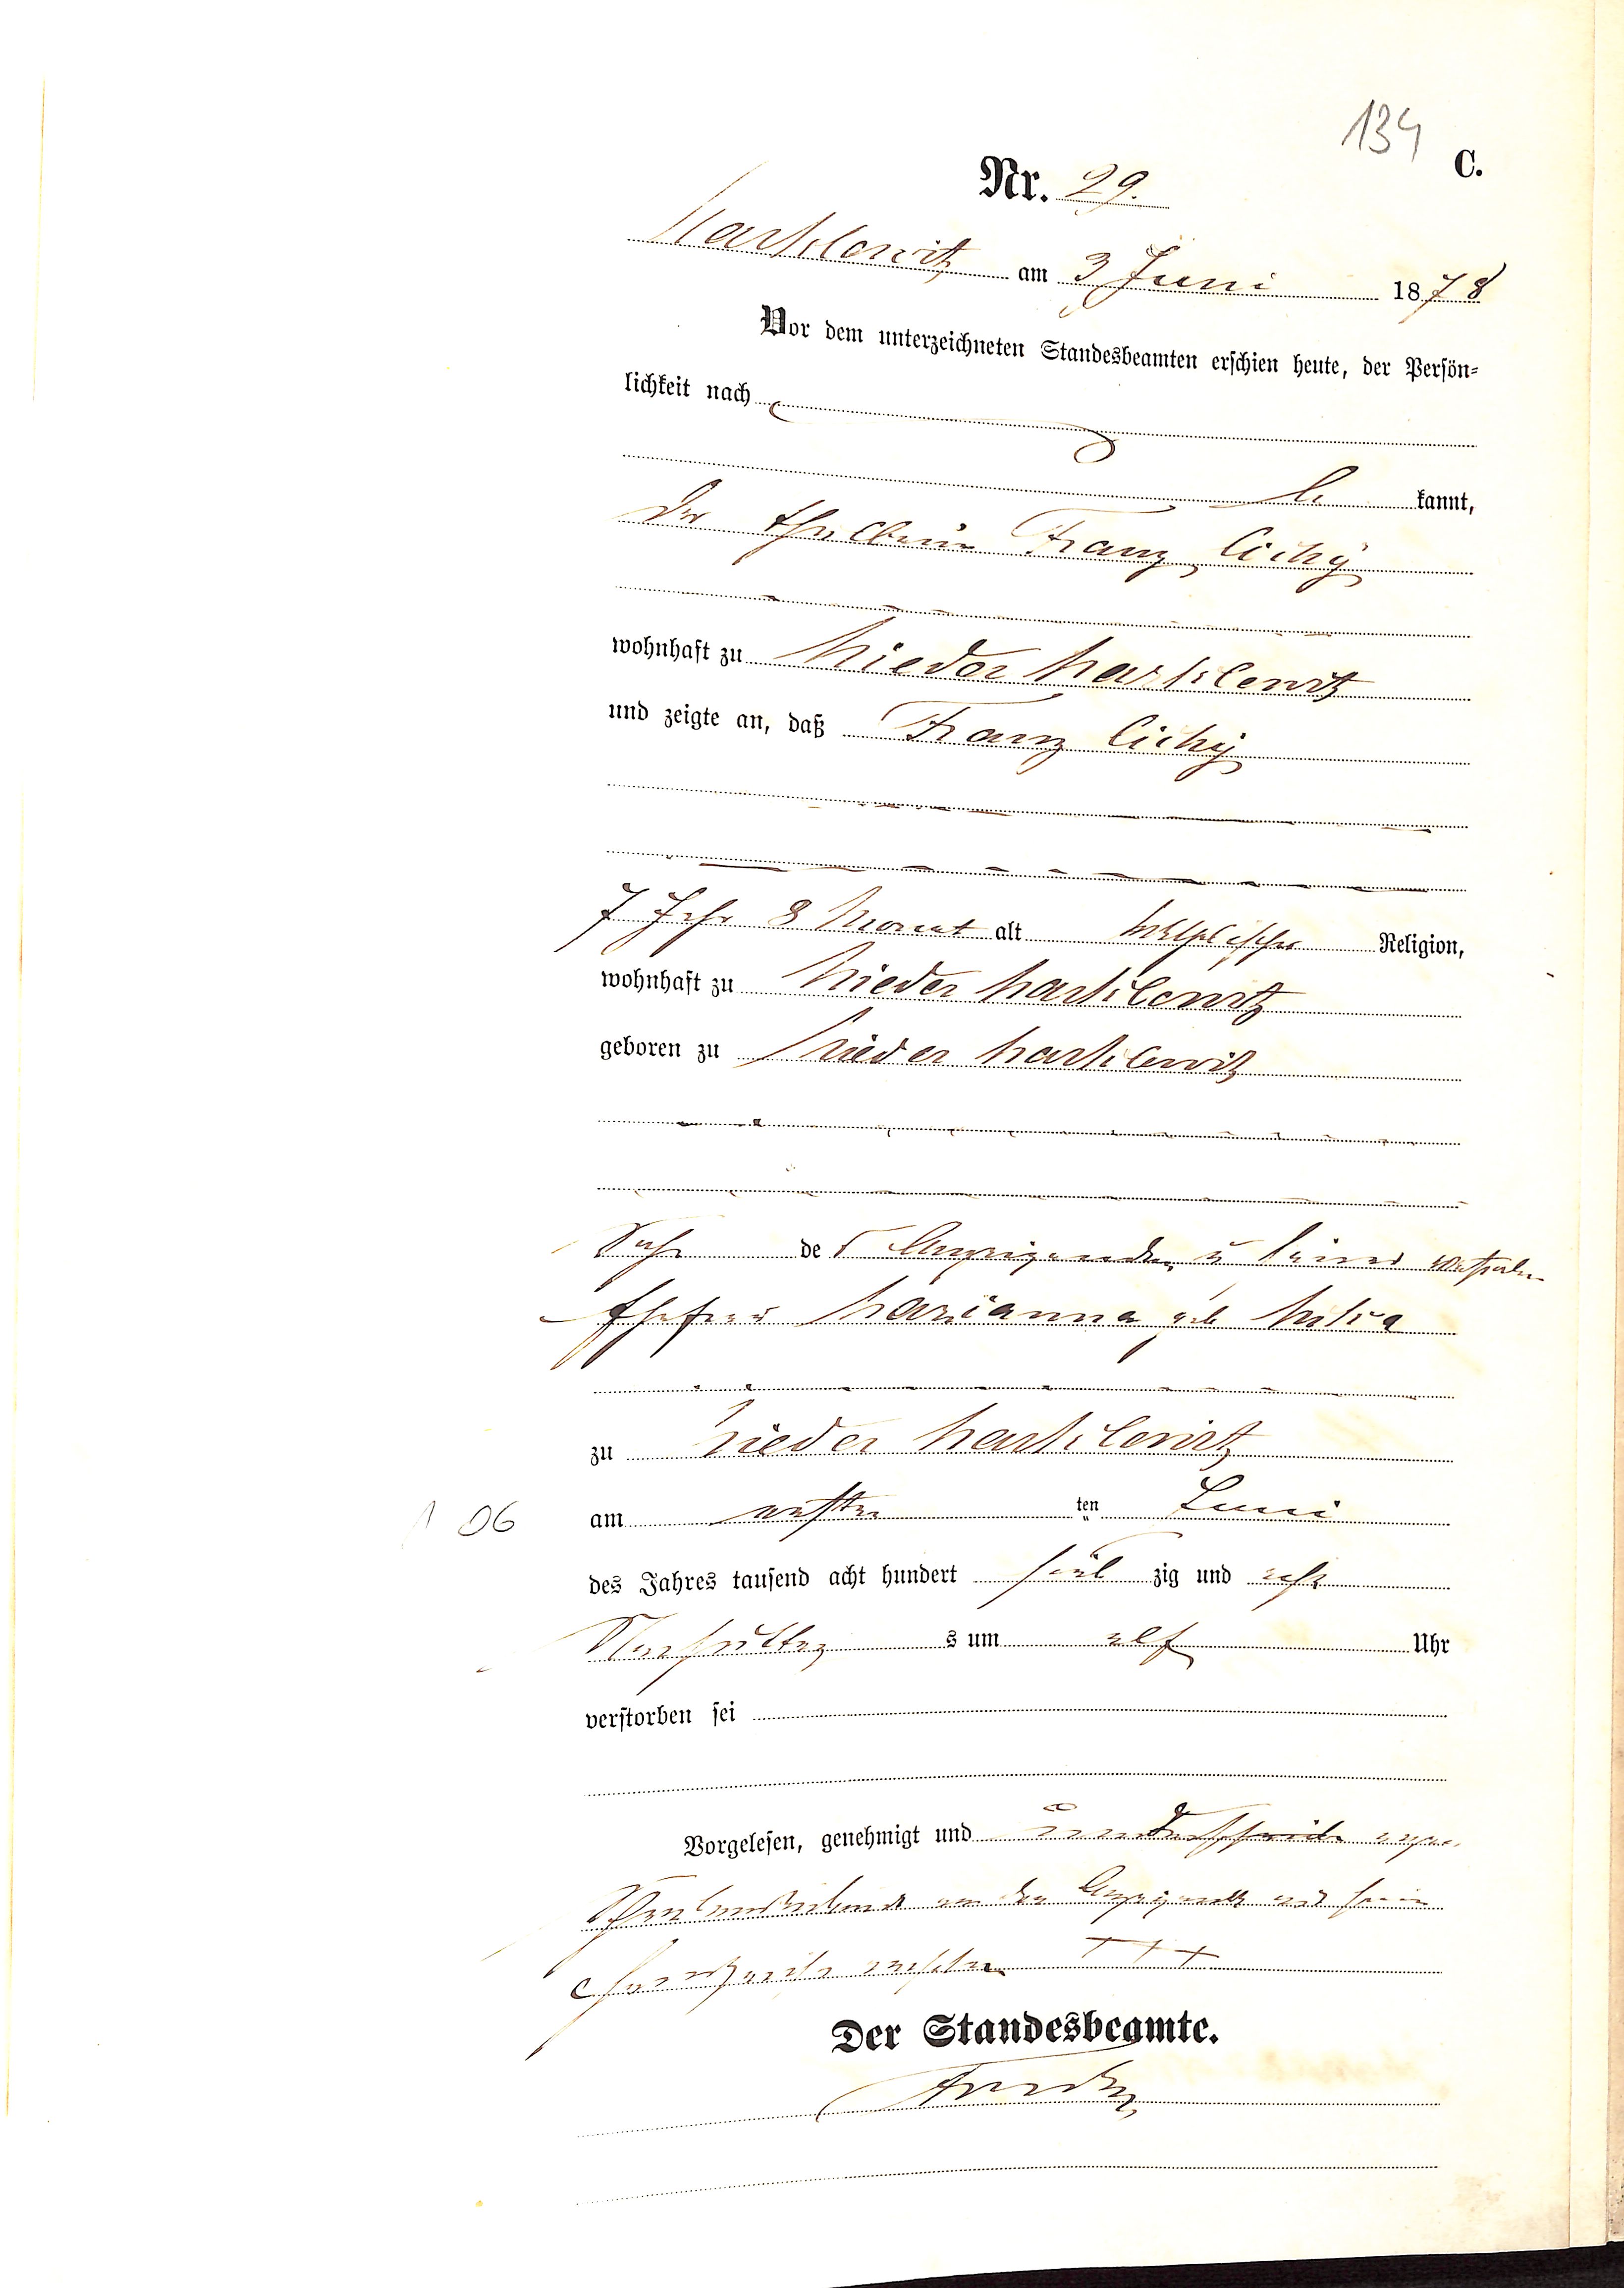 134
C.
Nr. 29.
Marklowitz am 3 Juni 1878
Vor dem unterzeichneten Standesbeamten erschien heute, der Persön-
lichkeit nach
be kannt,
Der Franz Cichy
wohnhaft zu Nieder Marklowitz
und zeigte an, daß Franz Cichy
7 Jahr 8 Monat alt katholischer Religion,
wohnhaft zu Nieder Marklowitz
geboren zu Nieder Marklowitz
Sohn des Anzeigenden u seiner
Ehefrau Marianna geb
zu Nieder Marklowitz
06
am ersten ten Juni
des Jahres tausend acht hundert sieb zig und acht
Vormittag s um elf Uhr
verstorben sei
Vorgelesen, genehmigt und wegen
Schreibensunkunde von dem Anzeigenden mit seinem
Handzeichen versehen +++
Der Standesbeamte.